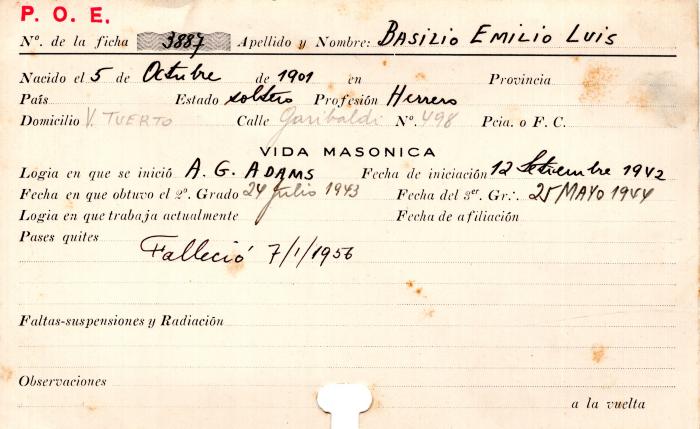 P. O. E.
Nº. de la ficha 3887 Apellido y Nombre: BASILIO EMILIO LUIS
Nacido el 5 de Octubre de 1901 en Provincia
País Estado soltero Profesión Herrero
Domicilio V. TUERTO Calle Garibaldi Nº. 498 Pcia. o F. C.
VIDA MASONICA
Logia en que se inició A. G. ADAMS Fecha de iniciación 12 Setiembre 1942
Fecha en que obtuvo el 2º. Grado 24 Julio 1943 Fecha del 3er. Gr∴. 25 MAYO 1944
Logia en que trabaja actualmente Fecha de afiliación
Pases quites
Falleció 7/1/1956
Faltas-suspensiones y Radiación
Observaciones
a la vuelta